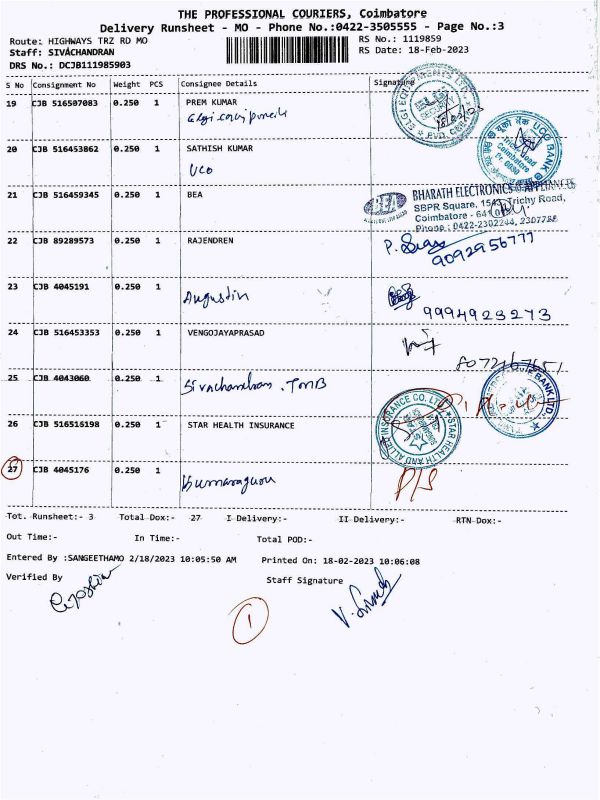 THE PROFESSIONAL COURIERS, Coimbatore
Delivery Runsheet - MO - Phone No.:0422-3505555 - Page No.:3
Route: HIGHWAYS TRZ RD MO
RS No.: 1119859
Staff: SIVACHANDRAN
RS Date: 18-Feb-2023
DRS No.: DCJB111985903
S No Consignment No Weight PCS Consignee Details Signature
19 CJB 516507083 0.250 1 PREM KUMAR
ELGI EQUIPMENTS LTD
SECURITY
20 CJB 516453862 0.250 1 SATHISH KUMAR
UCO
यूको बैंक UCO BANK
Trichy Road
Coimbatore
21 CJB 516459345 0.250 1 BEA
BEA
BHARATH ELECTRONICS & APPLIANCES
SBPR Square, 1543, Trichy Road,
Coimbatore - 641 0
Phone : 0422-2302244, 2307788
22 CJB 89289573 0.250 1 RAJENDREN
9092956777
23 CJB 4045191 0.250 1 Augustin
9994923273
24 CJB 516453353 0.250 1 VENGOJAYAPRASAD
8072167651
25 CJB 4043060 0.250 1 Sivachandran . TMB
BANK LTD.
26 CJB 516516198 0.250 1 STAR HEALTH INSURANCE
STAR HEALTH AND ALLIED INSURANCE CO. LTD.
27 CJB 4045176 0.250 1 Kumaraguru
P/S
Tot. Runsheet:- 3 Total Dox:- 27 I Delivery:- II Delivery:- RTN Dox:-
Out Time:- In Time:- Total POD:-
Entered By :SANGEETHAMO 2/18/2023 10:05:50 AM Printed On: 18-02-2023 10:06:08
Verified By Staff Signature
1